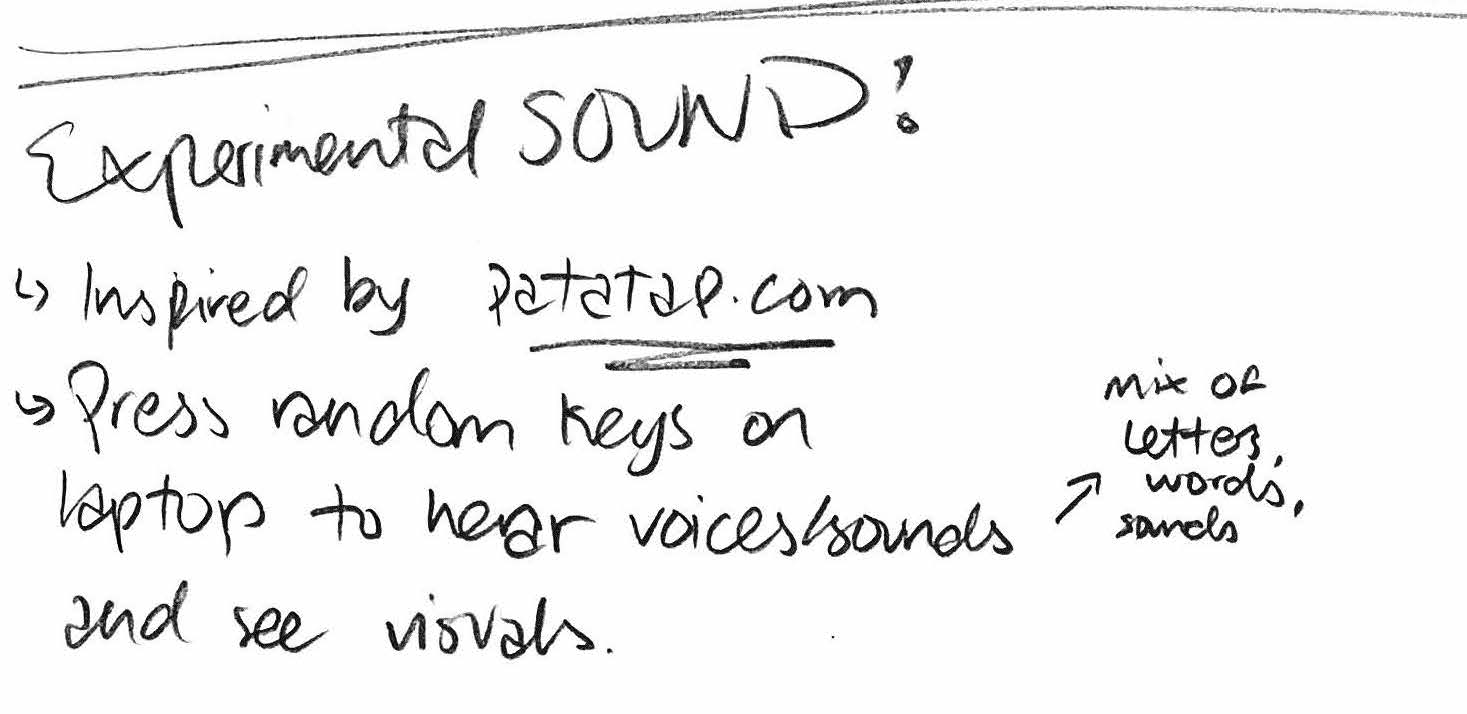 Experimental SOUND!
↳ Inspired by patatap.com
↳ Press random keys on
laptop to hear voices/sounds
and see visuals.
↗ mix of
letters,
words,
sounds